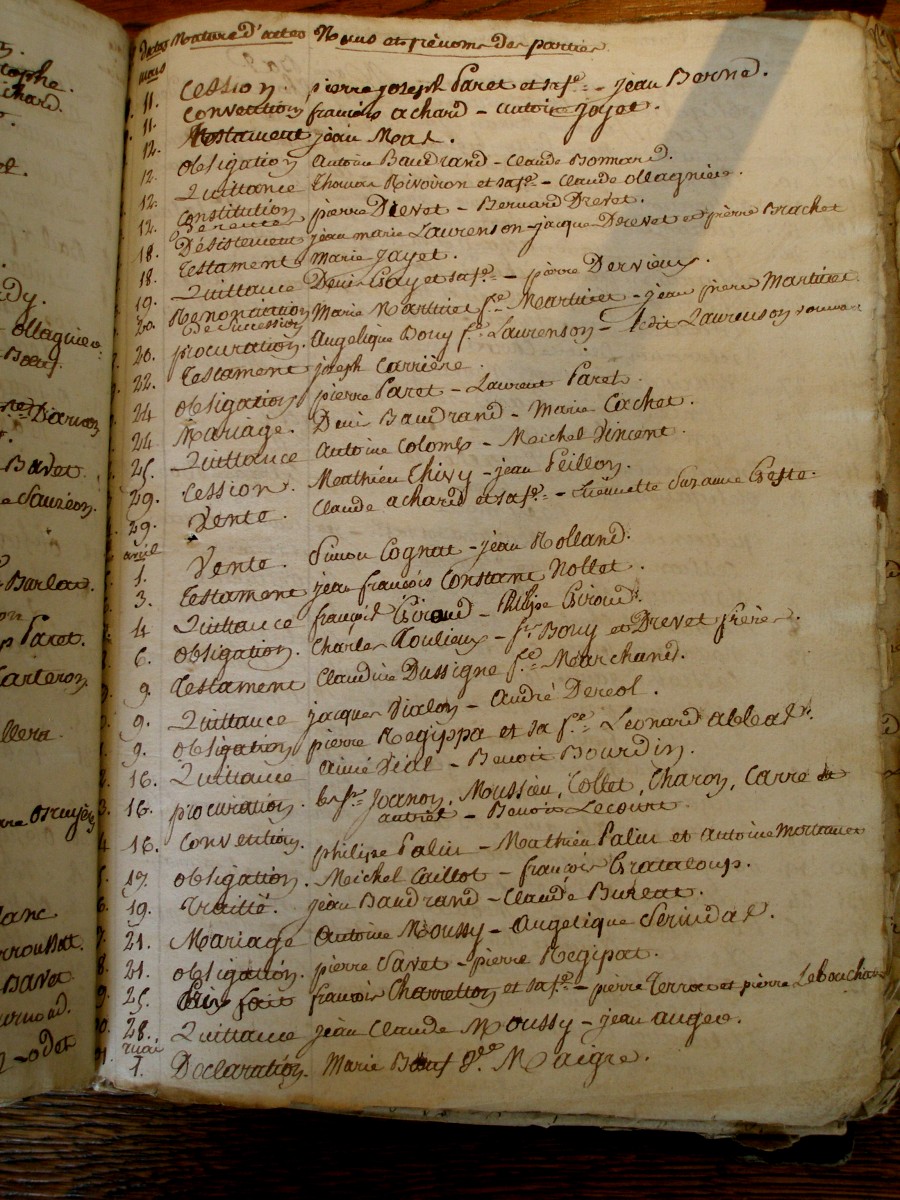 tophe.
chard.
dy.
ollagnier
Boeuf.
Darvon
Bavet.
e Sauzéon.
Burlat.
p Paret.
Carteron.
llera.
lanc
Bavet
Dates Nature d'actes Noms et prénoms des parties
mars
11. Cession. pierre joseph Paret et sa fe. - jean Berne.
11. Convention françois achard - antoine jayet.
12. Testament jean Mat.
12. obligation Antoine Baudrand - Claude Bonnard.
12. Quittance Thomas Rivoiron et sa fe. - Claude ollagnier.
12. Constitution De rente pierre Drevet - Bernard Drevet.
18. Désistement jean marie Laurenson - jacque Drevet et pierre Brachet
18. Testament Marie jayet.
19. Quittance Denis Gay et sa fe. - pierre Dervieux.
20. Renonciation De succession Marie Martinet fe. Martinet - jean pierre Martinet
20. procuration. Angelique Bouy fe. Laurenson - ledit Laurenson son mari
22. Testament joseph Carrière.
24 obligation pierre Paret - Laurent Paret.
24 Mariage. Denis Baudrand - Marie Cochet.
25. Quittance Antoine Colomb - Meichel Vincent.
29. Cession. Mathieu Thivy - jean Peillon.
29. Vente. Claude achard et sa fe. - Suzanne
avril
1. Vente. Simon Cognat - jean Rolland.
3. Testament jean françois Constant Nollet.
4 Quittance françois Giroud - Philipe Giroud.
6. obligation. Charles Roulieux - frs. Bouy et Drevet frères.
9. Testament Claudine Dussigne fe. Marchand.
9. Quittance jacques Vialon - André Dereol.
9. obligation pierre Regippa et sa fe. Léonard abbal
16. Quittance Aimé Vial - Benoit Bourdin.
16. procuration. les srs. Joanon, Moussieu, Collet, Charon, Carre et autres - Benoit Lecourt.
16. Convention. philipe Palin - Mathieu Palin et Antoine
17. obligation. Meichel Caillot - françois Grataloup.
19. Traitté. jean Baudrand - Claude Burlat.
21. Mariage Antoine Moussy - Angelique
21. obligation. pierre Savet - pierre Regipat.
25. françois Charretton et sa fe. - pierre Terrat et pierre
28. Quittance jean Claude Moussy - jean augeo.
mai
1. Déclaration. Marie Maigre.